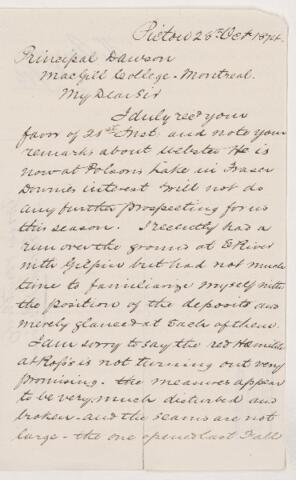 Pictou 28th Oct 1874.
Principal Dawson
MacGill College - Montreal.
My Dear Sir
I duly recd your
favor of 21st Inst. and note your
remarks about Webster He is
now at Polsons Lake in Fraser
Downes interest & will not do
any further prospecting for us
this season. I recently had a
run over the ground at E River
with Gilpin but had not much
time to familiarize myself with
the position of the deposits and
merely glanced at each of them.
I am sorry to say the red Hematite
at Ross's is not turning out very
promising. the measures appear
to be very much disturbed and
broken - and the seams are not
large - the one opened last Fall